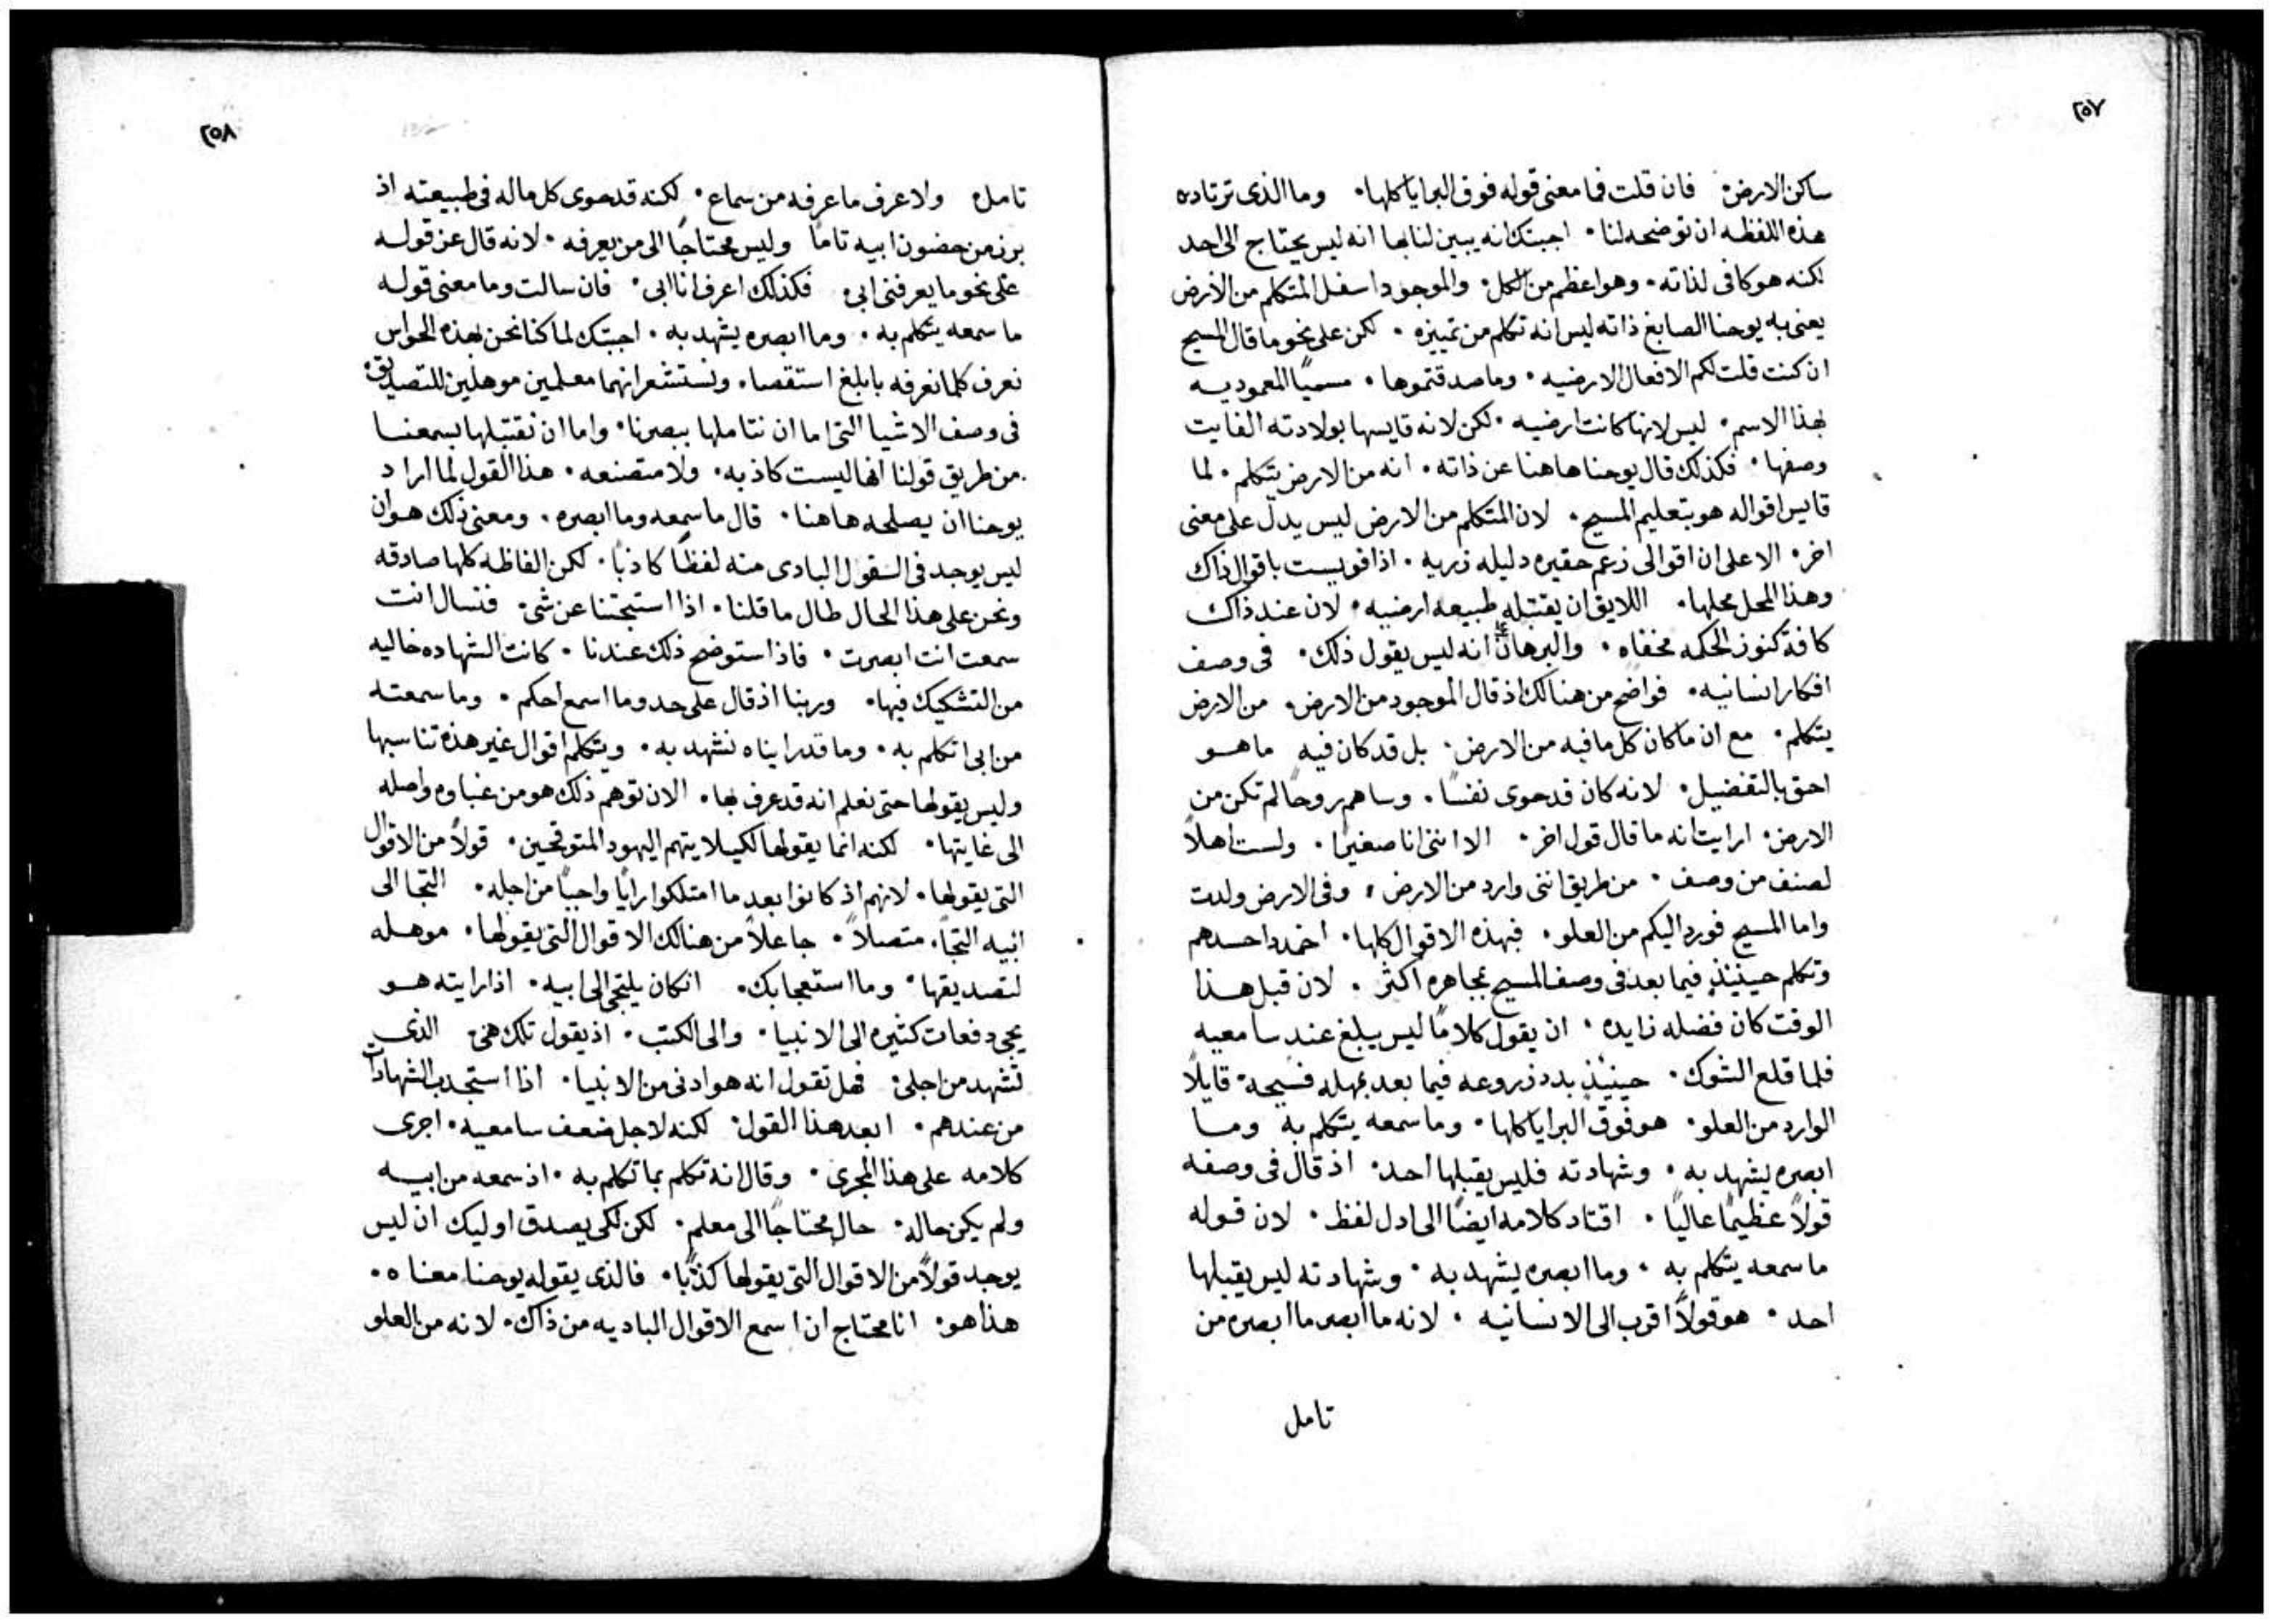 ٢٥٧
ساكن الارض· فان قلت فما معنى قوله فوق البرايا كلها· وما الذى ترتاده
هذه اللفظه ان توضحه لنا· اجبتك انه يبين لنا بها انه ليس يحتاج الى احد
لكنه هو كافى لذاته· وهو اعظم من الكل· والموجود اسفل المتكلم من الارض
يعنى به يوحنا الصابغ ذاته ليس انه تكلم من تمييزه· لكن على نحو ما قال المسيح
ان كنت قلت لكم الافعال الارضيه· وما صدقتموها· مسميًا المعموديه
بهذا الاسم· ليس لانها كانت ارضيه· لكن لانه قايسها بولادته الفايت
وصفها· فكذلك قال يوحنا هاهنا عن ذاته· انه من الارض يتكلم· لما
قايس اقواله هو بتعليم المسيح· لان المتكلم من الارض ليس يدل على معنى
اخر· الا على ان اقوالى زعم حقيره دليله زريه· اذا قويست باقوال ذاك
وهذا المحل محلها· اللايق ان يقتبله طبيعه ارضيه· لان عند ذاك
كافة كنوز الحكمه مخفاه· والبرهان على انه ليس يقول ذلك· فى وصف
افكار انسانيه· فواضح من هنالك اذ قال الموجود من الارض· من الارض
يتكلم· مع ان ما كان كل ما فيه من الارض· بل قد كان فيه ما هو
احق بالتفضيل· لانه كان قد حوى نفسًا· وساهم روحًا لم تكن من
الارض· ارايت انه ما قال قول اخر· الا اننى انا صغيرًا· ولست اهلاً
لصنف من وصف· من طريق اننى وارد من الارض· وفى الارض ولدت
واما المسيح فورد اليكم من العلو· فبهذه الاقوال كلها· اخمد حسدهم
وتكلم حينيذٍ فيما بعد فى وصف المسيح بمجاهره اكثر· لان قبل هذا
الوقت كان فضله زايده· ان يقول كلامًا ليس يبلغ عند سامعيه
فلما قلع الشوك· حينيذٍ بدد زروعه فيما بعد بمهله فسيحه· قايلاً
الوارد من العلو· هو فوق البرايا كلها· وما سمعه يتكلم به وما
ابصره يشهد به· وشهادته فليس يقبلها احد· اذ قال فى وصفه
قولاً عظيمًا عاليًا· اقتاد كلامه ايضًا الى ادل لفظ· لان قوله
ما سمعه يتكلم به· وما ابصره يشهد به· وشهادته ليس يقبلها
احد· هو قولاً اقرب الى الانسانيه· لانه ما ابصر ما ابصره من
تامل
٢٥٨
تامل· ولا عرف ما عرفه من سماع· لكنه قد حوى كل ماله فى طبيعته اذ
برز من حضون ابيه تامًا وليس محتاجًا الى من يعرفه· لانه قال عن قوله
على نحو ما يعرفنى ابى· فكذلك اعرف انا ابى· فان سالت وما معنى قوله
ما سمعه يتكلم به· وما ابصره يشهد به· اجبتك لما كنا نحن بهذه الحواس
نعرف كلما نعرفه بابلغ استقصا· ونستشعر انهما معلمين موهلين للتصديق·
فى وصف الاشيا التى اما ان نتاملها ببصرنا· واما ان نقتبلها بسمعنا
من طريق قولنا انها ليست كاذبه· ولا متصنعه· هذا القول لما اراد
يوحنا ان يصلحه هاهنا· قال ما سمعه وما ابصره· ومعنى ذلك هو ان
ليس يوجد فى القول البادى منه لفظًا كاذبًا· لكن الفاظه كلها صادقه
ونحن على هذا الحال طال ما قلنا· اذا استبحثنا عن شى· فنسال انت
سمعت انت ابصرت· فاذا استوضح ذلك عندنا· كانت الشهاده خاليه
من التشكيك فيها· وربنا اذ قال على حد وما اسمع احكم· وما سمعته
من ابى اتكلم به· وما قد راينا ه نشهد به· ويتكلم اقوال غير هذه تناسبها
وليس يقولها حتى نعلم انه قد عرف بها· الان توهم ذلك هو من غباوه واصله
الى غايتها· لكنه انما يقولها لكيلا يتهم اليهود المتوقحين· قولاً من الاقوال
التى يقولها· لانهم اذ كانوا بعد ما امتلكوا رايًا واجبًا من اجله· التجا الى
ابيه التجاً· متصلاً· جاعلاً من هنالك الاقوال التى يقولها· موهله
لتصديقها· وما استعجابك· ان كان يلتجى الى ابيه· اذا رايته هو
يجى دفعات كثيره الى الانبيا· والى الكتب· اذ يقول تلك هى· الذى
تشهد من اجلى· فهل تقول انه هو ادنى من الانبيا· اذا استجدب الشهادات
من عندهم· ابعد هذا القول· لكنه لاجل ضعف سامعيه· اجرى
كلامه على هذا المجرى· وقال انه تكلم بما تكلم به· اذ سمعه من ابيه
ولم يكن حاله· حال محتاجًا الى معلم· لكن لكى يصدق اوليك ان ليس
يوجد قولاً من الاقوال التى يقولها كذبًا· فالذى يقوله يوحنا معناه·
هذا هو· انا محتاج ان اسمع الاقوال الباديه من ذاك· لانه من العلو